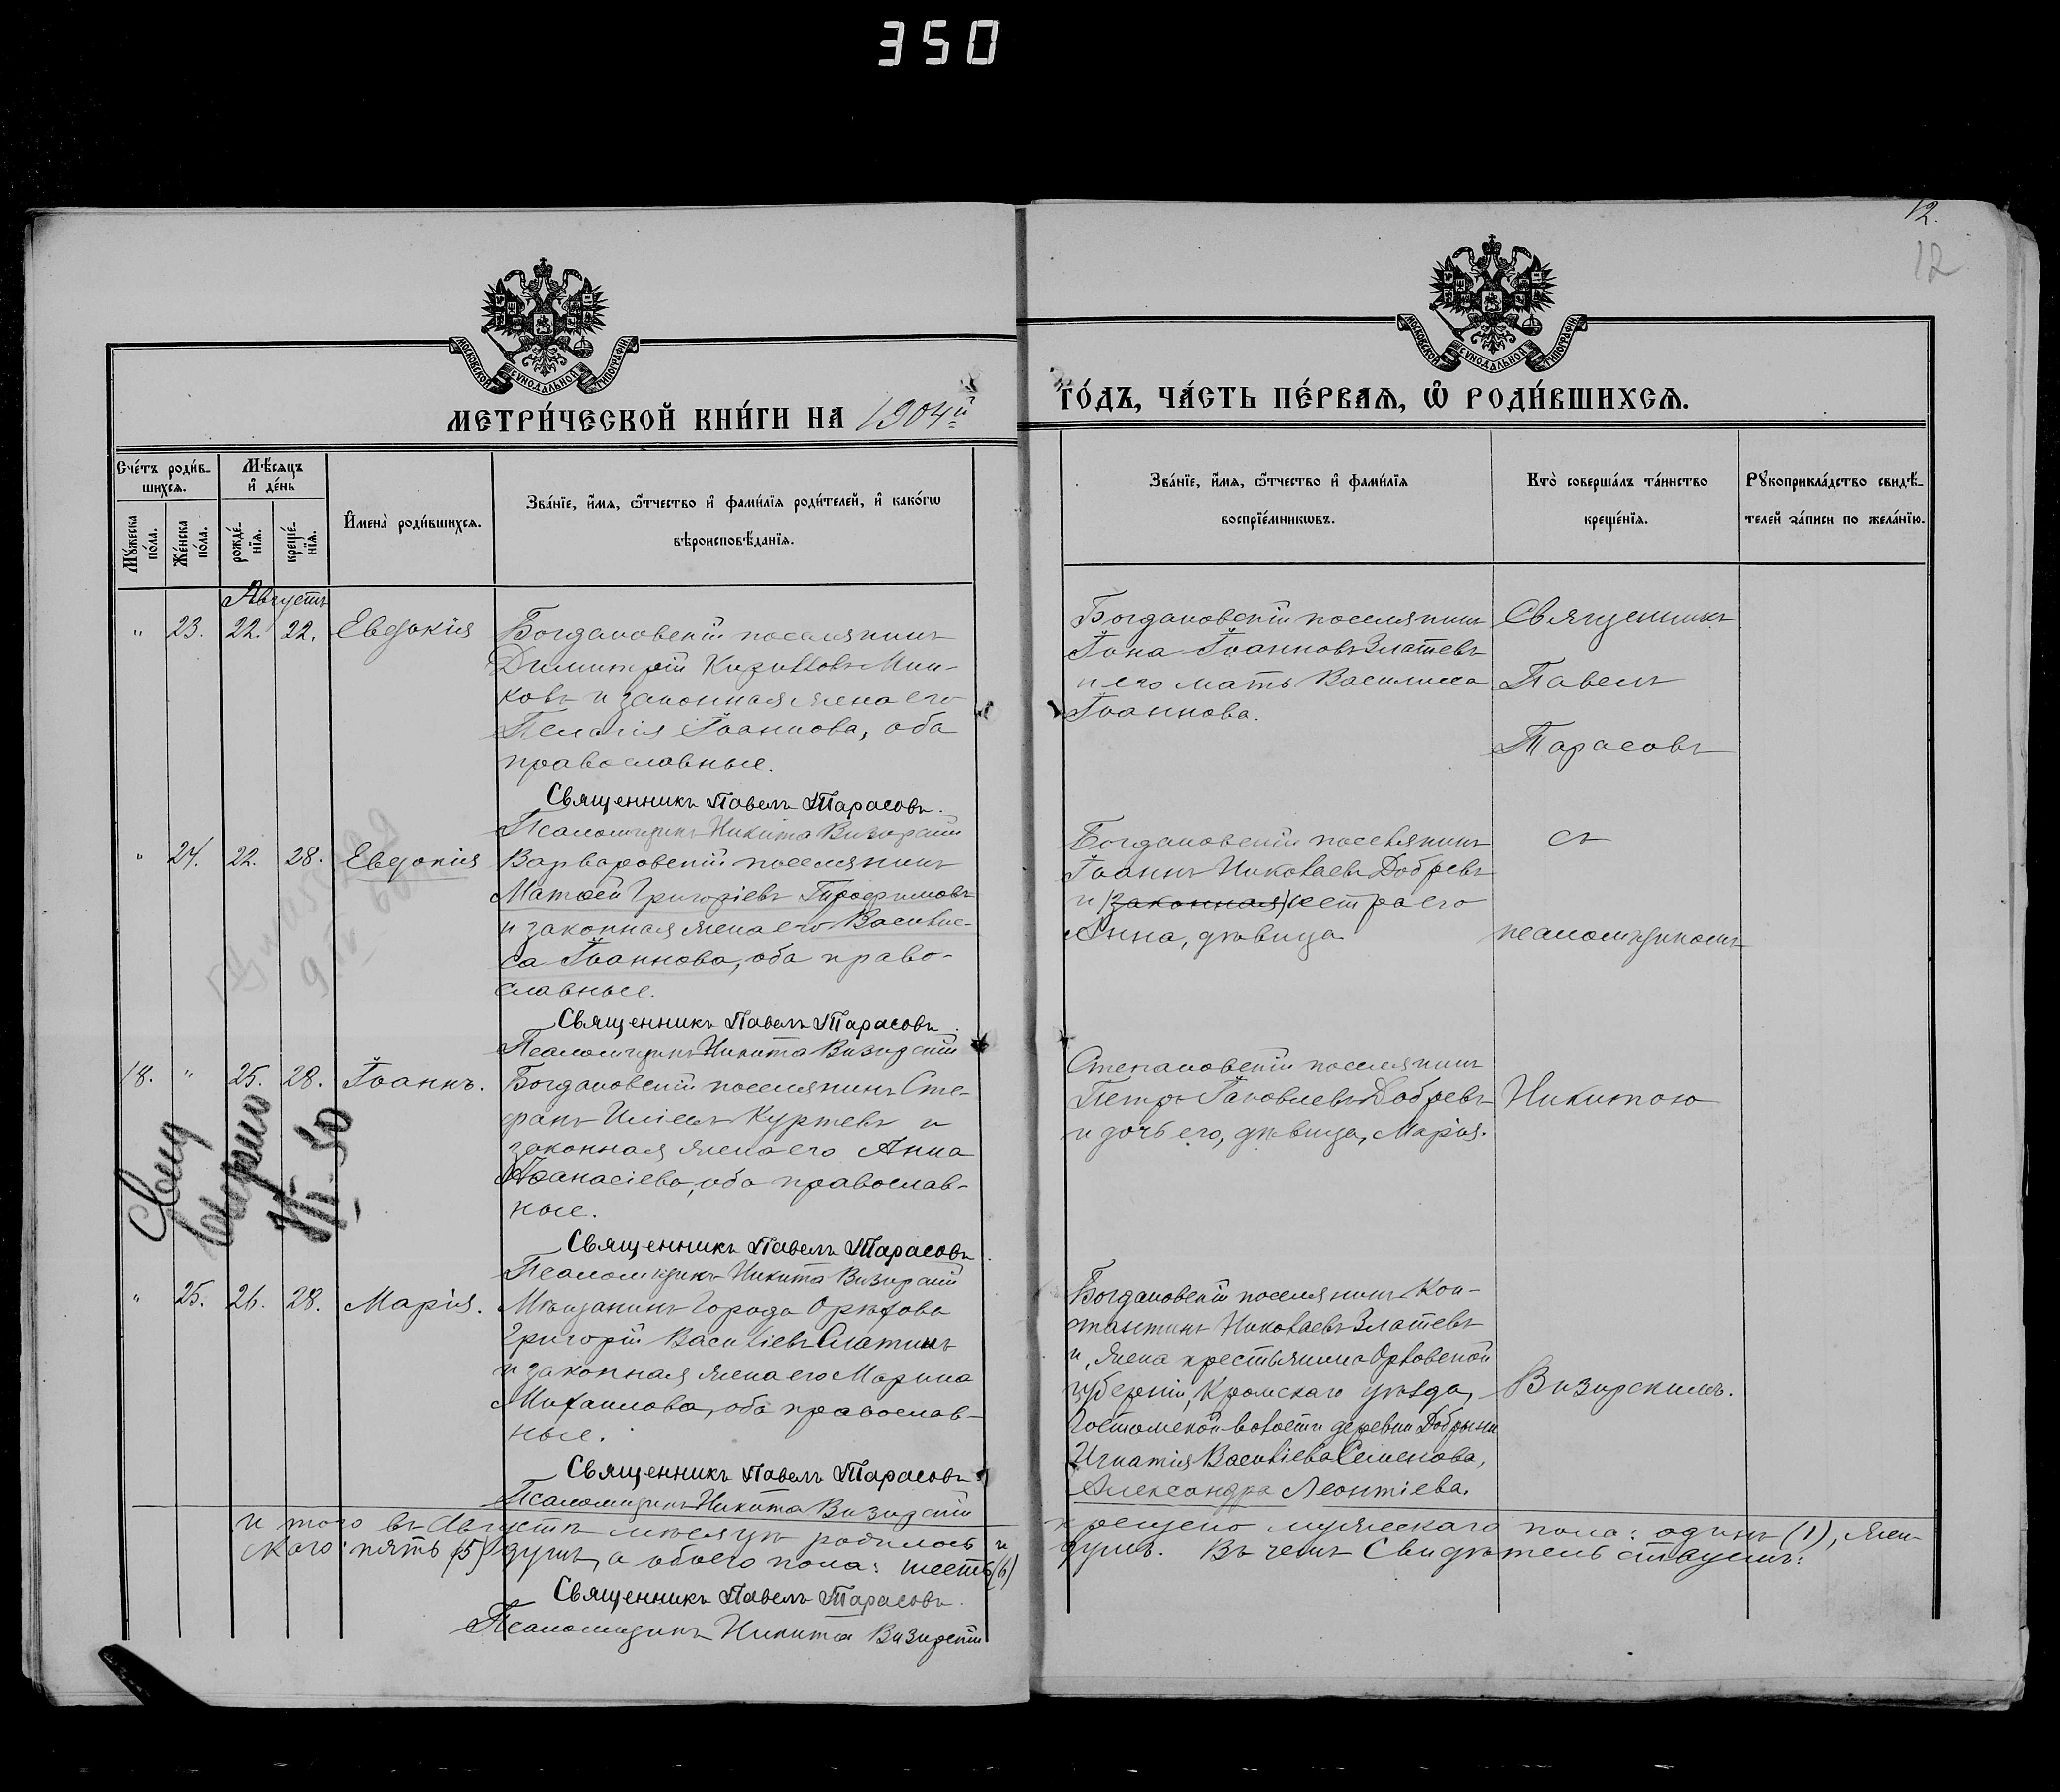 350
12.
12
МОСКОВСКОЙ СѴНОДАЛЬНОЙ ТИПОГРАФІИ
МОСКОВСКОЙ СѴНОДАЛЬНОЙ ТИПОГРАФІИ
МЕТРИ́ЧЕСКОЙ КНИ́ГИ НА 1904й
ГО́ДЪ, ЧА́СТЬ ПЕ́РВАѦ, Ѡ҆ РОДИ́ВШИХСѦ.
Сче́тъ роди́в-
шихсѧ.
Мꙋ́жеска
по́ла.
Же́нска
по́ла.
Мѣ́сѧцъ
и҆ де́нь
рожде́-
нїѧ.
креще́-
нїѧ.
И҆мена̀ роди́вшихсѧ.
Зва́нїе, и҆́мѧ, ѻ҆́тчество и҆ фами́лїѧ роди́телей, и҆ како́гѡ
вѣроисповѣ́данїѧ.
Зва́нїе, и҆́мѧ, ѻ҆́тчество и҆ фами́лїѧ
воспрїе́мникѡвъ.
Кто̀ соверша́лъ та́инство
креще́нїѧ.
Рꙋкоприкла́дство свидѣ́-
телей за́писи по жела́нїю.
Августъ
" 23. 22. 22. Евдокія
Богдановскій поселянинъ
Димитрій Кирилловъ Мин-
ковъ и законная жена его
Пелагія Іоаннова, оба
православные.
Священникъ Павелъ Тарасовъ.
Псаломщикъ Никита Визирскій
Богдановскій поселянинъ
Іона Іоанновъ Златевъ
и его мать Василисса
Іоаннова.
Священникъ
Павелъ
Тарасовъ
" 24. 22. 28. Евдокія
Варваровскій поселянинъ
Матѳей Григоріевъ Трофимовъ
и законная жена его Васили-
са Іоаннова, оба право-
славные.
Священникъ Павелъ Тарасовъ.
Псаломщикъ Никита Визирскій
Богдановскій поселянинъ
Іоаннъ Николаевъ Добревъ
и (законная) сестра его
Анна, дѣвица
съ
псаломщикомъ
18. " 25. 28. Іоаннъ.
Богдановскій поселянинъ Сте-
фанъ Иліевъ Куртевъ и
законная жена его Анна
Аѳанасіева, оба православ-
ные.
Священникъ Павелъ Тарасовъ.
Псаломщикъ Никита Визирскій
Степановскій поселянинъ
Петръ Іаковлевъ Добревъ
и дочь его, дѣвица, Марія.
Никитою
VII-50
" 25. 26. 28. Марія.
Мѣщанинъ Города Орѣхова
Григорій Василіевъ Слатинъ
и законная жена его Марина
Михаилова, оба православ-
ные.
Священникъ Павелъ Тарасовъ
Псаломщикъ Никита Визирскій
Богдановскій поселянинъ Кон-
стантинъ Николаевъ Златевъ
и, жена крестьянина Орловской
губерніи, Кромскаго уѣзда,
Гостомской волости деревни Добрыни
Игнатія Василіева Семенова,
Александра Леонтіева.
Визирскимъ.
и того въ Августѣ мѣсяцѣ родилось и крещено мужескаго пола: одинъ (1), жен-
скаго: пять (5) душъ, а обоего пола: шесть (6) душъ. Въ чемъ Свидѣтельствуемъ:
Священникъ Павелъ Тарасовъ.
Псаломщикъ Никита Визирскій